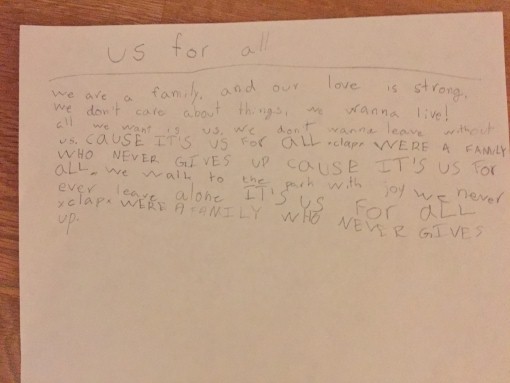 us for all
we are a family. and our love is strong.
we don't care about things, we wanna live!
all we want is us. we don't wanna leave without
us. CAUSE IT'S US FOR ALL *clap* WERE A FAMILY
WHO NEVER GIVES UP CAUSE IT'S US FOR
ALL. we walk to the park with joy we never
ever leave alone IT'S US FOR ALL
*clap* WERE A FAMILY WHO NEVER GIVES
up.